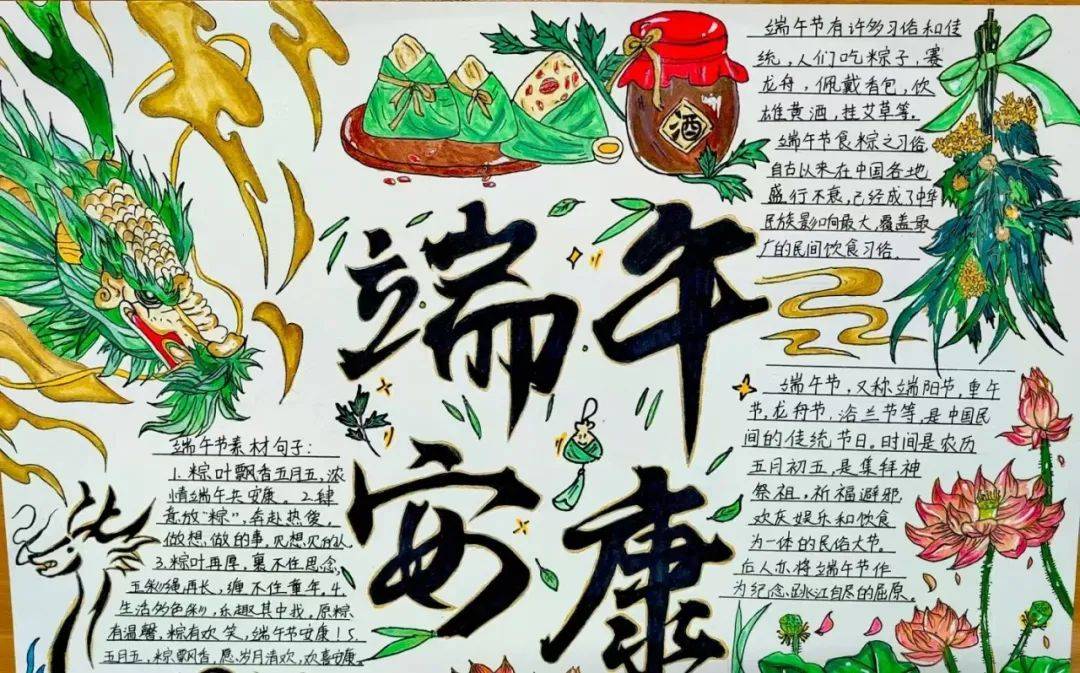 端午安康
酒
端午节有许多习俗和传
统，人们吃粽子，赛
龙舟，佩戴香包，饮
雄黄酒，挂艾草等，
端午节食粽之习俗，
自古以来在中国各地
盛行不衰，已经成了中华
民族影响最大、覆盖最
广的民间饮食习俗。
端午节，又称端阳节，重午
节，龙舟节，浴兰节等，是中国民
间的传统节日。时间是农历
五月初五，是集拜神
祭祖，祈福避邪，
欢庆娱乐和饮食
为一体的民俗大节。
后人亦将端午节作
为纪念跳江自尽的屈原。
端午节素材句子：
1.粽叶飘香五月五，浓
情端午共安康。2.肆
意放“粽”，奔赴热爱，
做想做的事，见想见的人
3.粽叶再厚，裹不住思念，
五彩绳再长，缠不住童年。4.
生活多色彩，乐趣其中找，原粽
有温馨，粽有欢笑，端午节安康！5.
五月五，粽飘香，愿岁月清欢，欢喜安康。